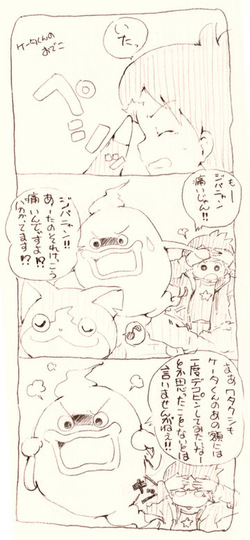 ケータくんの
おでこ
いたっ
ペシ
もー
ジバニャン
痛いじゃん!!
ジバニャン!!
あーたのそれけっこう
痛いんですよ!?
分かってます!?
まぁワタクシも
ケータくんのあの額には
一度デコピンしてみたいなー
とか思ったことないとは
言いませんがねぇ!!